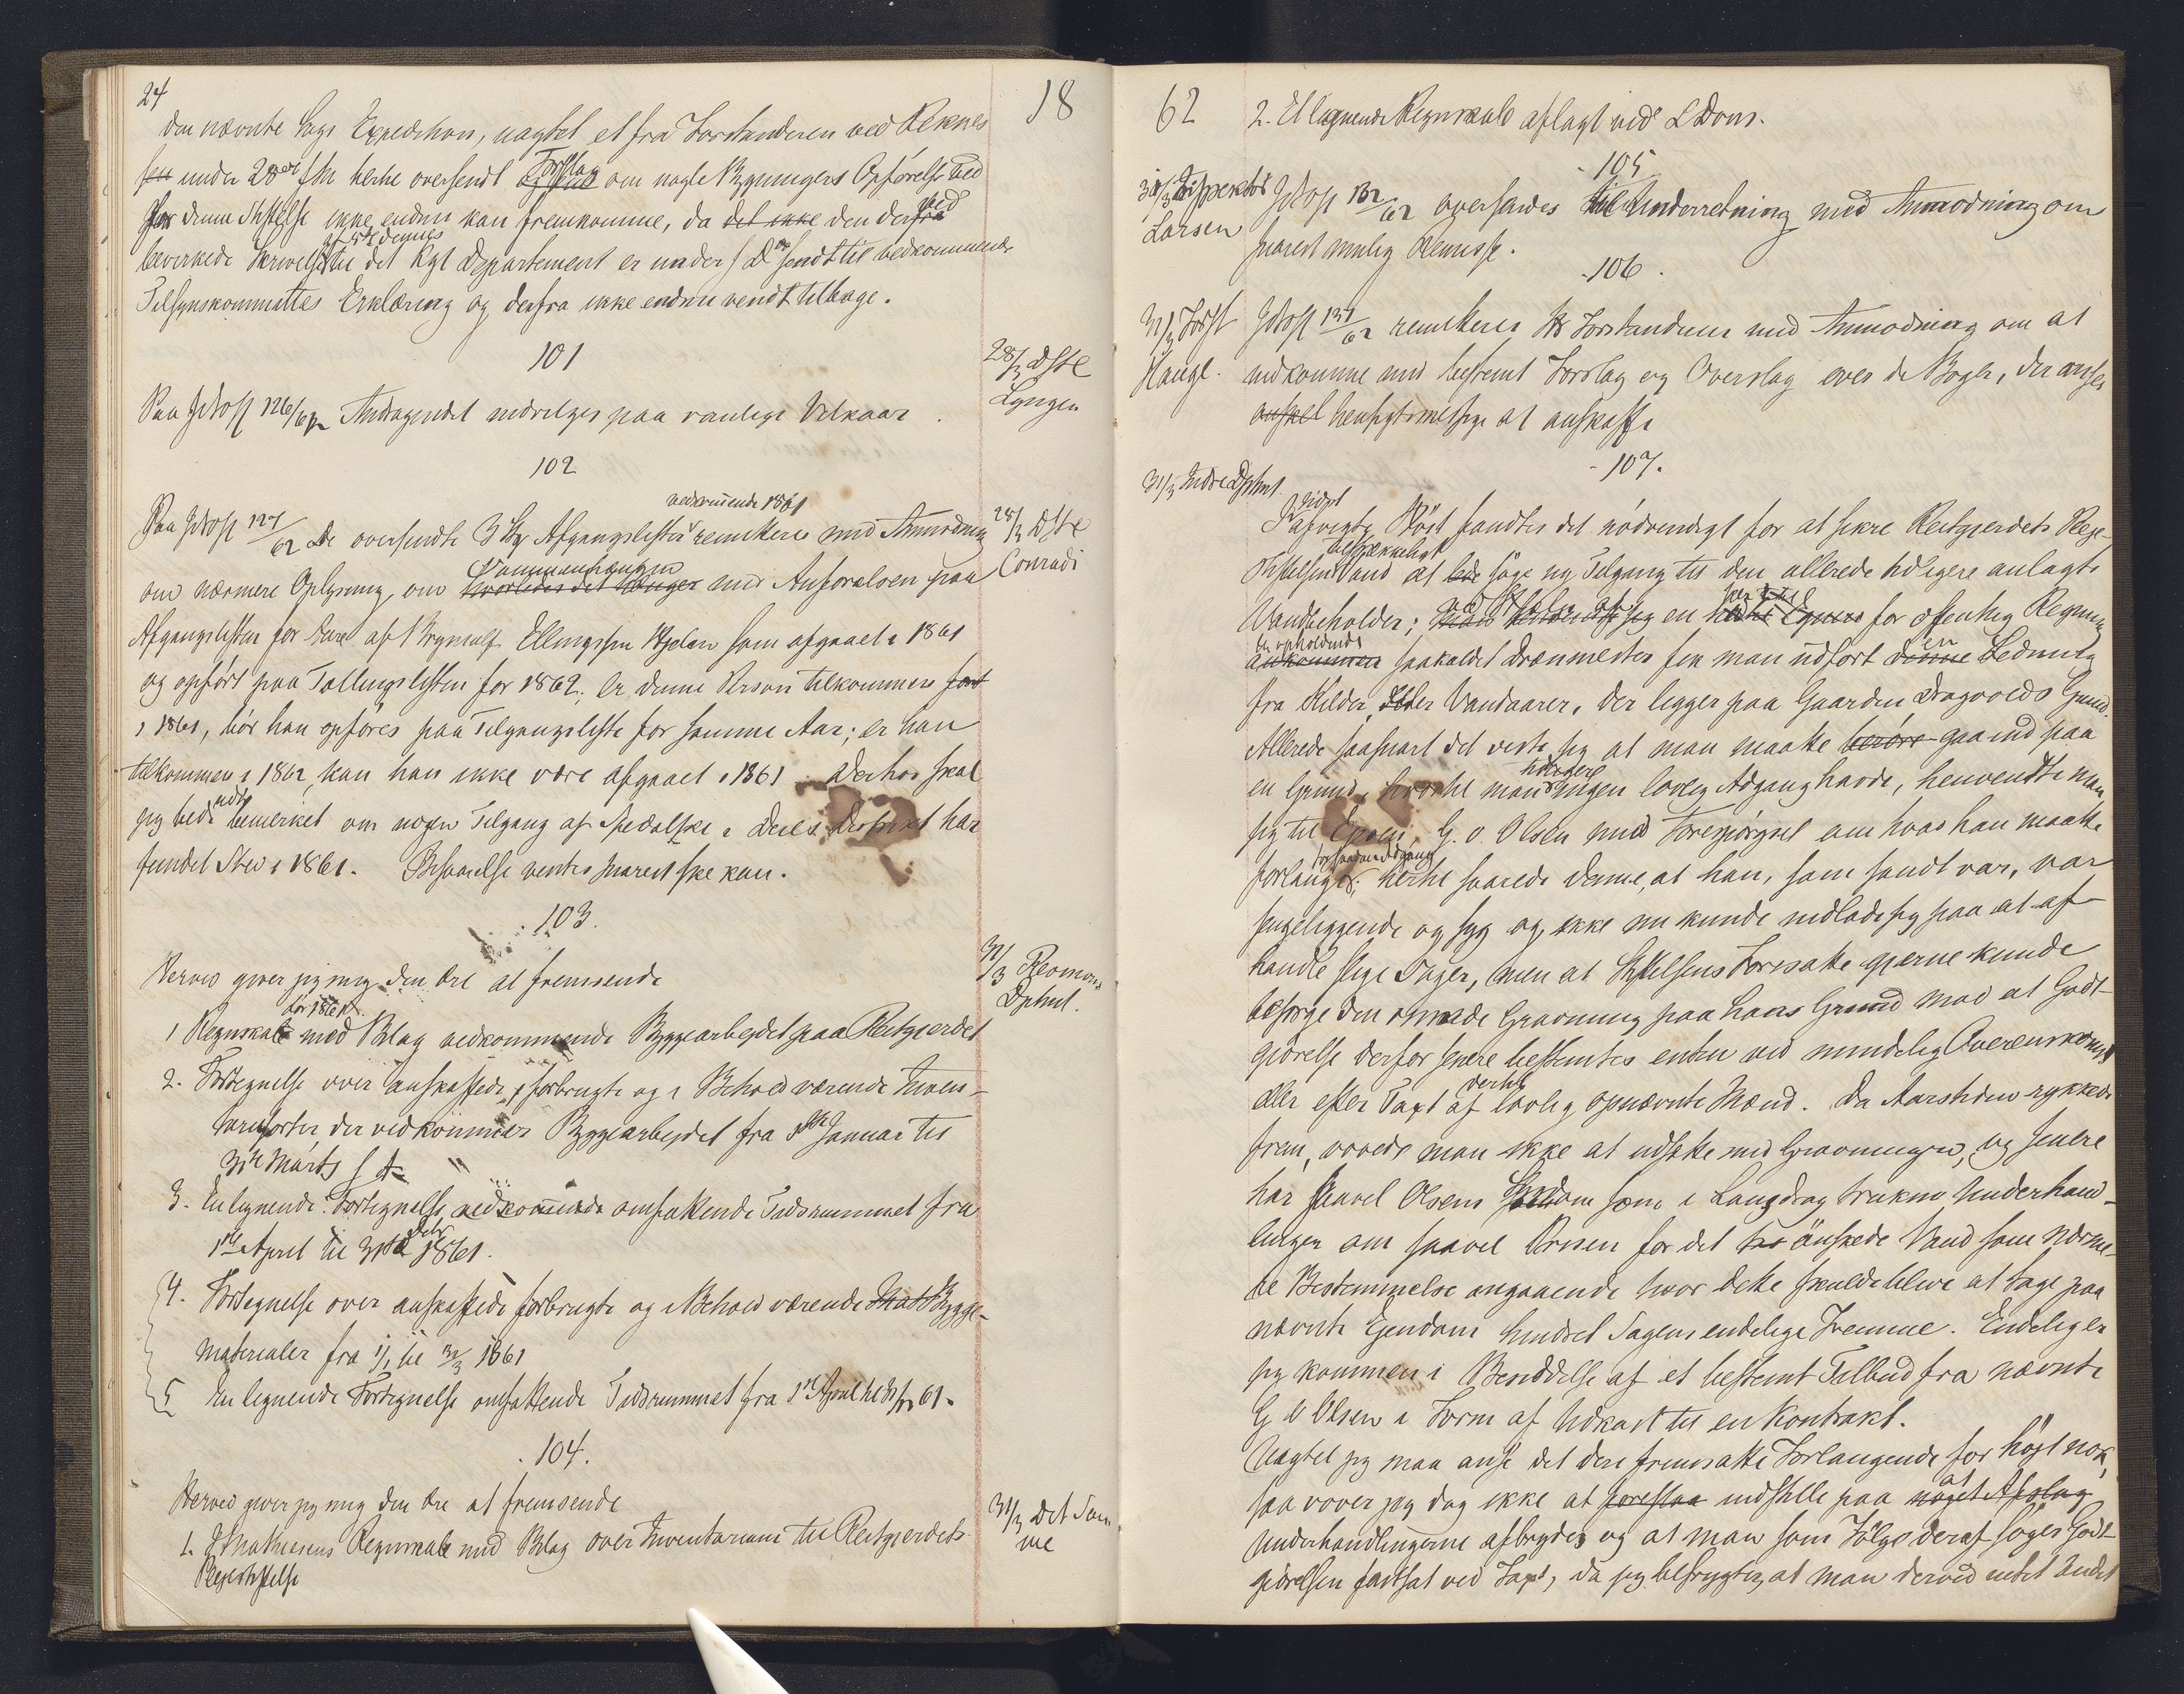 24
18
den nævnte Sags Expedition, uagtet et fra Forstanderen ved Reknes
under 28de f M hertil oversendt Forslag om nogle Bygningers Opførelse ved
denne Stiftelse ikke endnu kan fremkomme, da det ikke den derfra
bevirkede Skrivelse til det Kgl Departement er under sendt til vedkommende
Tilsynskommittes Erklæring og derfra ikke endnu vendt tilbage.
101
Paa Jdos 126/62 Andragendet indvilges paa vanlige Vilkaar.
28/3 Dstl
Lyngen
102
vedkommende 1861
Paa Jdos 127/62 De oversendte 3 Afgangslister remitteres med Anmodning
28/3 Dstl
Conradi
Sammenhængen
om nærmere Oplysning, om hvorledes det hænger med Anførelsen paa
Afgangslisten for af Brynulf Ellingsen som afgaaet i 1861
og opført paa Tællingslisten for 1862; er denne Person tilkommen først
i 1861, bør han opføres paa Tilgangsliste for samme Aar; er han
tilkommen i 1862, kan han ikke være afgaaet i 1861. Derhos skal
jeg bede bemerket om nogen Tilgang af Spedalske i Deres Distrikt har
fundet Sted i 1861. Besvarelse ventes snarest ske kan.
103.
Herved giver jeg mig den Ære at fremsende
31/3 Revisions
Dptmt.
for 1861
1 Regnskab med Bilag vedkommende Byggearbejdet paa Reitgjerdet
2. Fortegnelse over anskaffede, forbrugte og i Behold værende Inven-
tariesorter, der vedkommer Byggearbejdet fra 1ste Januar til
31te Marts
3. En lignende Fortegnelse vedkommende omfattende Tidsrummet fra
1ste April til 31te Dcbr 1861.
4. Fortegnelse over anskaffede forbrugte og i Behold værende Mat Bygge-
materialer fra 1/1 til 31/3 1861
5 En lignende Fortegnelse omfattende Tidsrummet fra 1ste April til 31/12 61.
104.
Herved giver jeg mig den Ære at fremsende
31/3 Det Sam
me
1. Mathiesens Regnskab med Bilag over Inventarium til Reitgjerdets
Plejestiftelse
62
2. Et lignende Regnskab aflagt ved L Dons.
105
31/3 Inspektør
Larsen
Jdos 132/62 oversendes til Underretning med Anmodning om
snarest mulig Remisse.
106.
31/3 Forst
Haugl.
Jdos 131/62 remitteres Hr Forstanderen med Anmodning om at
indkomme med bestemt Forslag og Overslag over de Bøger, der anses
ønsket hensigtsmessige at anskaffe
107.
31/3 Indre Dptmt.
afvigte Høst fandtes det nødvendigt for at sikre Reitgjerdets Pleje-
stiftelse Vand at lede søge ny Tilgang til den allerede tidligere anlagte
Vandbeholder; en for offentlig Regning
sig opholdende
ankommen saakaldet Drænmester fik man udført denne Ledning
fra Kilder eller Vandaarer, der ligger paa Gaarden Dragvolds Grund.
Allerede saasnart det viste sig at man maatte berøre gaa ind paa
en Grund, hvortil man tidligere ingen lovlig Adgang havde, henvendte man
sig til G. O. Olsen med Forespørgsel om hvad han maatte
for saadan Adgang
forlange; hertil svarede denne, at han, som sandt var, var
sengeliggende og syg og ikke nu kunde indlade sig paa at af-
handle slige Sager, men at Stiftelsens Foresatte gjerne kunde
besørge den omtalte Gravning paa hans Grund mod at Godt-
gjørelse derfor senere bestemtes enten ved mindelig Overenskomst
eller efter Taxt af dertil lovlig opnævnte Mænd. Da Aarstiden rykkede
frem, vovede man ikke at udsætte med Gravningen, og senere
har saavel Olsens Sygdom som i Langdrag trukne Underhand-
linger om saavel Prisen for det ønskede Vand som nærme-
re Bestemmelse angaaende hvor dette skulde blive at tage paa
nævnte Ejendom hindret Sagens endelige Fremme. Endelig er
jeg kommen i Besiddelse af et bestemt Tilbud fra nævnte
G O Olsen i Form af Udkast til en Kontrakt.
Uagtet jeg maa anse det deri fremsatte Forlangende for højt nok,
saa vover jeg dog ikke at foreslaa indstille paa noget Afslag at
Underhandlingerne afbrydes og at man som Følge deraf søger Godt-
gjørelsen fastsat ved Taxt, da jeg befrygter, at man derved intet andet